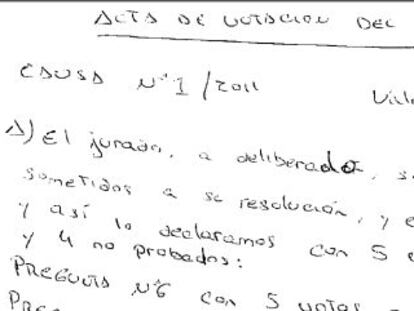 ACTA DE VOTACION DEL
CAUSA Nº 1/2011
A) El jurado, a deliberado, s
sometidos a su resolución, y e
y así lo declaramos con 5
y 4 no probados:
PREGUNTA Nº6 con 5 votos